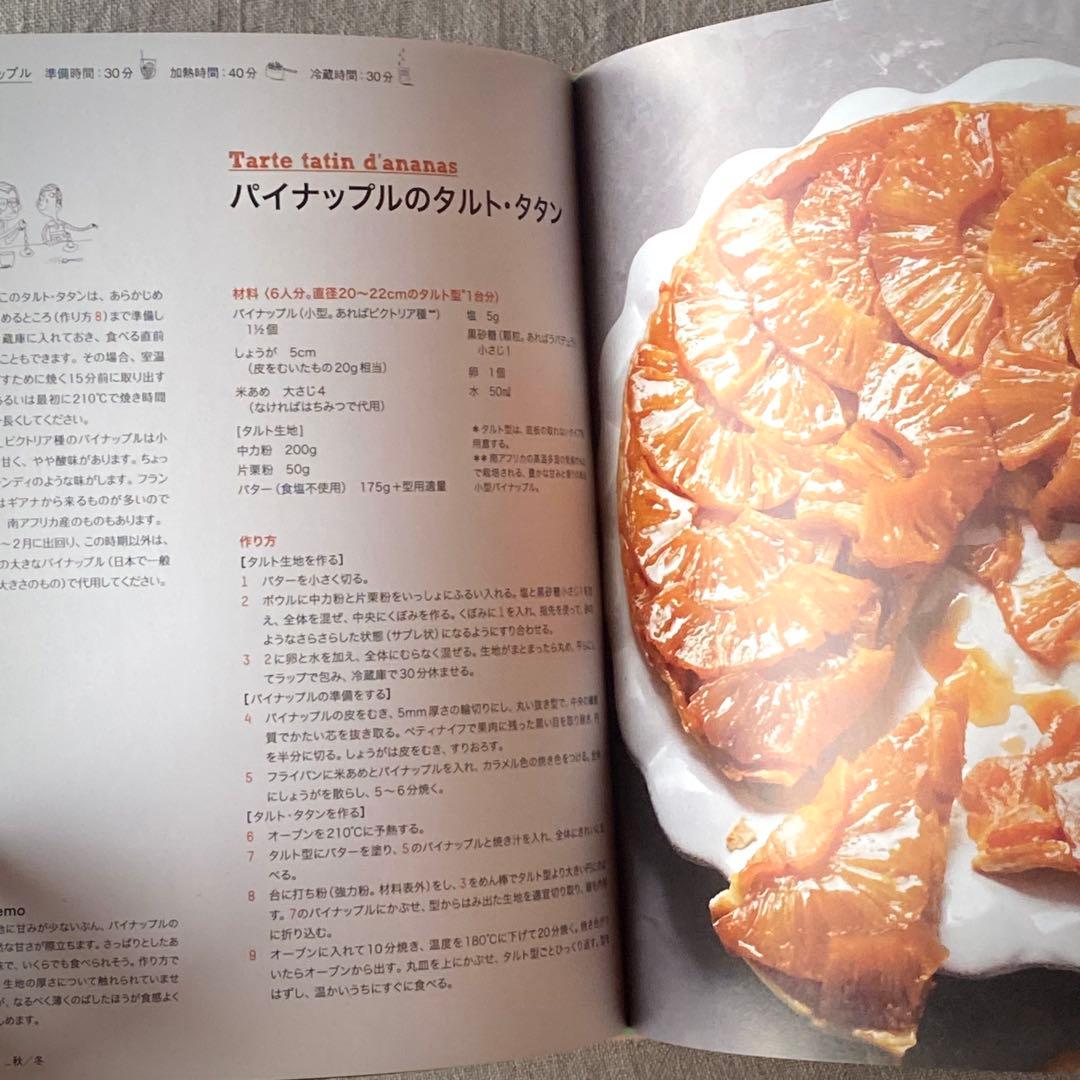 ップル 準備時間：30分 加熱時間：40分 冷蔵時間：30分
Tarte tatin d'ananas
パイナップルのタルト・タタン
このタルト・タタンは、あらかじめ
めるところ（作り方8）まで準備し
蔵庫に入れておき、食べる直前
こともできます。その場合、室温
すために焼く15分前に取り出す
るいは最初に210℃で焼き時間
長くしてください。
ビクトリア種のパイナップルは小
甘く、やや酸味があります。ちょっ
ンディのような味がします。フラン
はギアナから来るものが多いので
南アフリカ産のものもあります。
～2月に出回り、この時期以外は、
の大きなパイナップル（日本で一般
大きさのもの）で代用してください。
材料（6人分。直径20～22cmのタルト型*1台分）
パイナップル（小型。あればビクトリア種**）
1½個
しょうが 5cm
（皮をむいたもの20g相当）
米あめ 大さじ4
（なければはちみつで代用）
[タルト生地]
中力粉 200g
片栗粉 50g
バター（食塩不使用） 175g＋型用適量
塩 5g
黒砂糖（顆粒。あればラパデュラ）
小さじ1
卵 1個
水 50㎖
*タルト型は、底板の取れないタイプを
用意する。
**南アフリカの高温多湿の
で栽培される、豊かな甘みと香りの
小型パイナップル。
作り方
[タルト生地を作る]
1 バターを小さく切る。
2 ボウルに中力粉と片栗粉をいっしょにふるい入れる。塩と黒砂糖小さじ1を加
え、全体を混ぜ、中央にくぼみを作る。くぼみに1を入れ、指先を使って、砂の
ようなさらさらした状態（サブレ状）になるようにすり合わせる。
3 2に卵と水を加え、全体にむらなく混ぜる。生地がまとまったら丸め、平らにし
てラップで包み、冷蔵庫で30分休ませる。
[パイナップルの準備をする]
4 パイナップルの皮をむき、5mm厚さの輪切りにし、丸い抜き型で、中央の繊維
質でかたい芯を抜き取る。ペティナイフで果肉に残った黒い目を取り除き、円
を半分に切る。しょうがは皮をむき、すりおろす。
5 フライパンに米あめとパイナップルを入れ、カラメル色の焼き色をつける。全体
にしょうがを散らし、5～6分焼く。
[タルト・タタンを作る]
6 オーブンを210℃に予熱する。
7 タルト型にバターを塗り、5のパイナップルと焼き汁を入れ、全体にきれいに並
べる。
8 台に打ち粉（強力粉。材料表外）をし、3をめん棒でタルト型より大きい円にのば
す。7のパイナップルにかぶせ、型からはみ出た生地を適宜切り取り、縁を内側
に折り込む。
9 オーブンに入れて10分焼き、温度を180℃に下げて20分焼く。焼き色がつ
いたらオーブンから出す。丸皿を上にかぶせ、タルト型ごとひっくり返す。型を
はずし、温かいうちにすぐに食べる。
emo
地に甘みが少ないぶん、パイナップルの
然な甘さが際立ちます。さっぱりとしたあ
味で、いくらでも食べられそう。作り方で
生地の厚さについて触れられていませ
が、なるべく薄くのばしたほうが食感よく
しめます。
_秋／冬